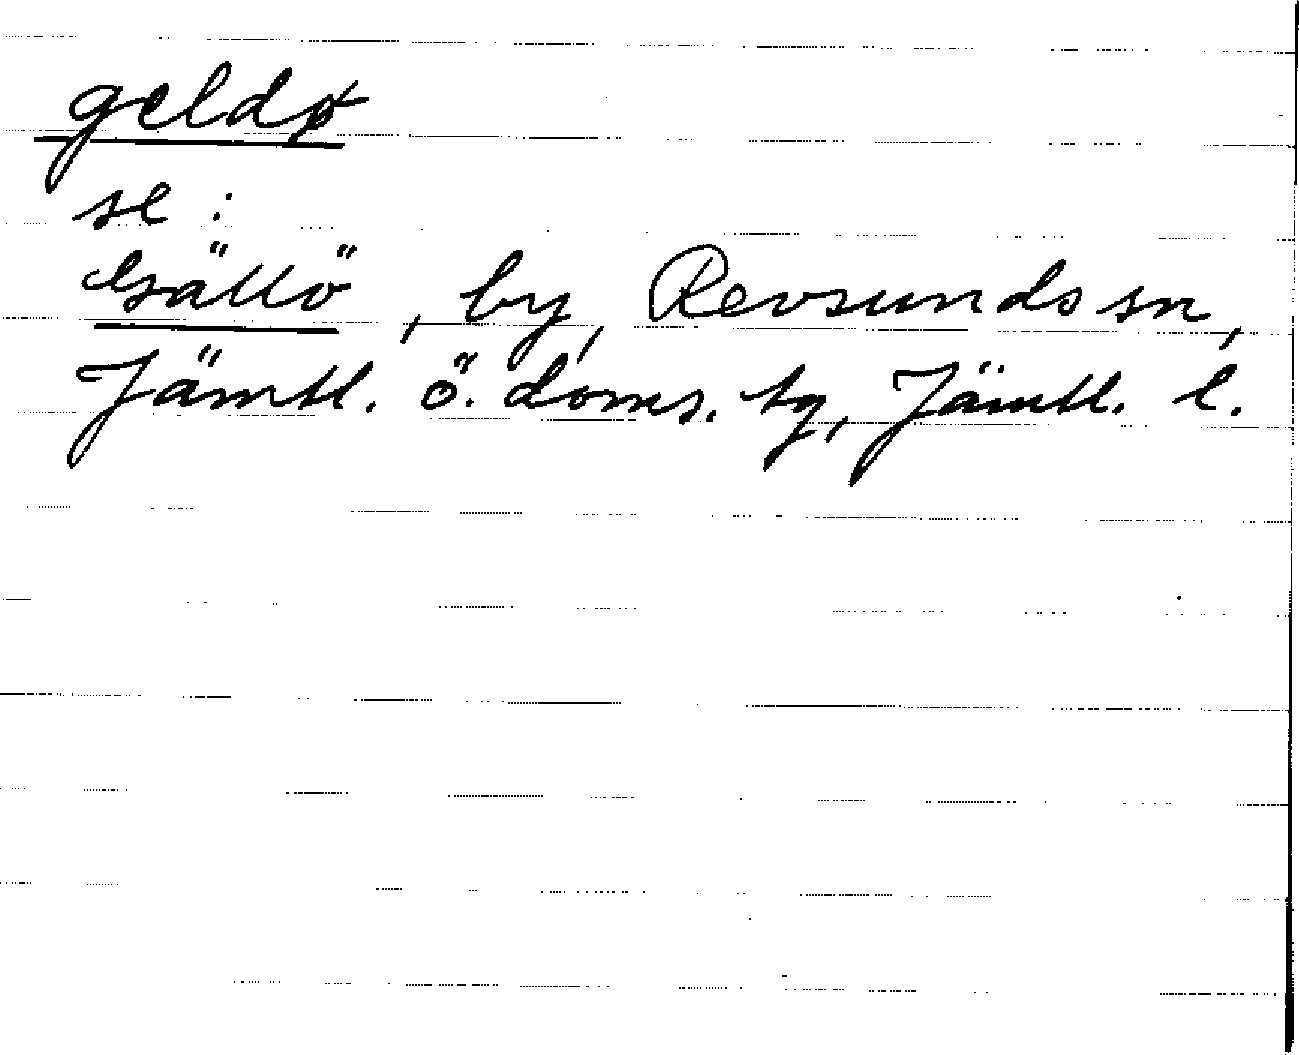 geldø
se :
Gällö, by, Revsunds sn,
Jämtl. ö. doms. tg, Jämtl. l.